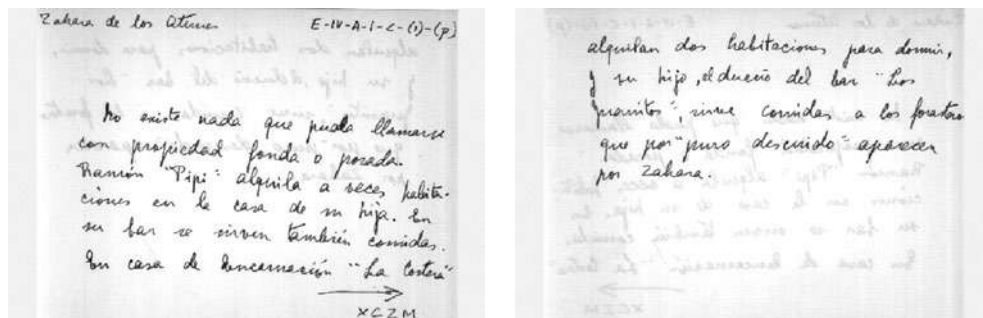 Zahara de los Atunes E-IV-A-1-C-(1)-(p)
No existe nada que pueda llamarse
con propiedad fonda o posada.
Ramón "Pipi" alquila a veces habita-
ciones en la casa de su hija. En
su bar se sirven también comidas.
En casa de Encarnación "La
XCZM
alquilan dos habitaciones para dormir,
y su hijo, el dueño del bar "Los
sirve comidas a los forasteros
que por puro descuido aparecen
por Zahara.